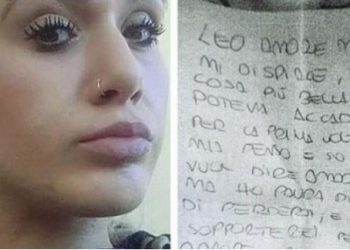 LEO AMORE M
MI DISPIACE,
COSA PIÙ BELLA
POTEVA ACCAD
PER LA PRIMA VOL
MIA PENSO E SO
VUOL DIRE AMO
MA HO PAURA DI
DI PERDERTI, E
SOPPORTEREI